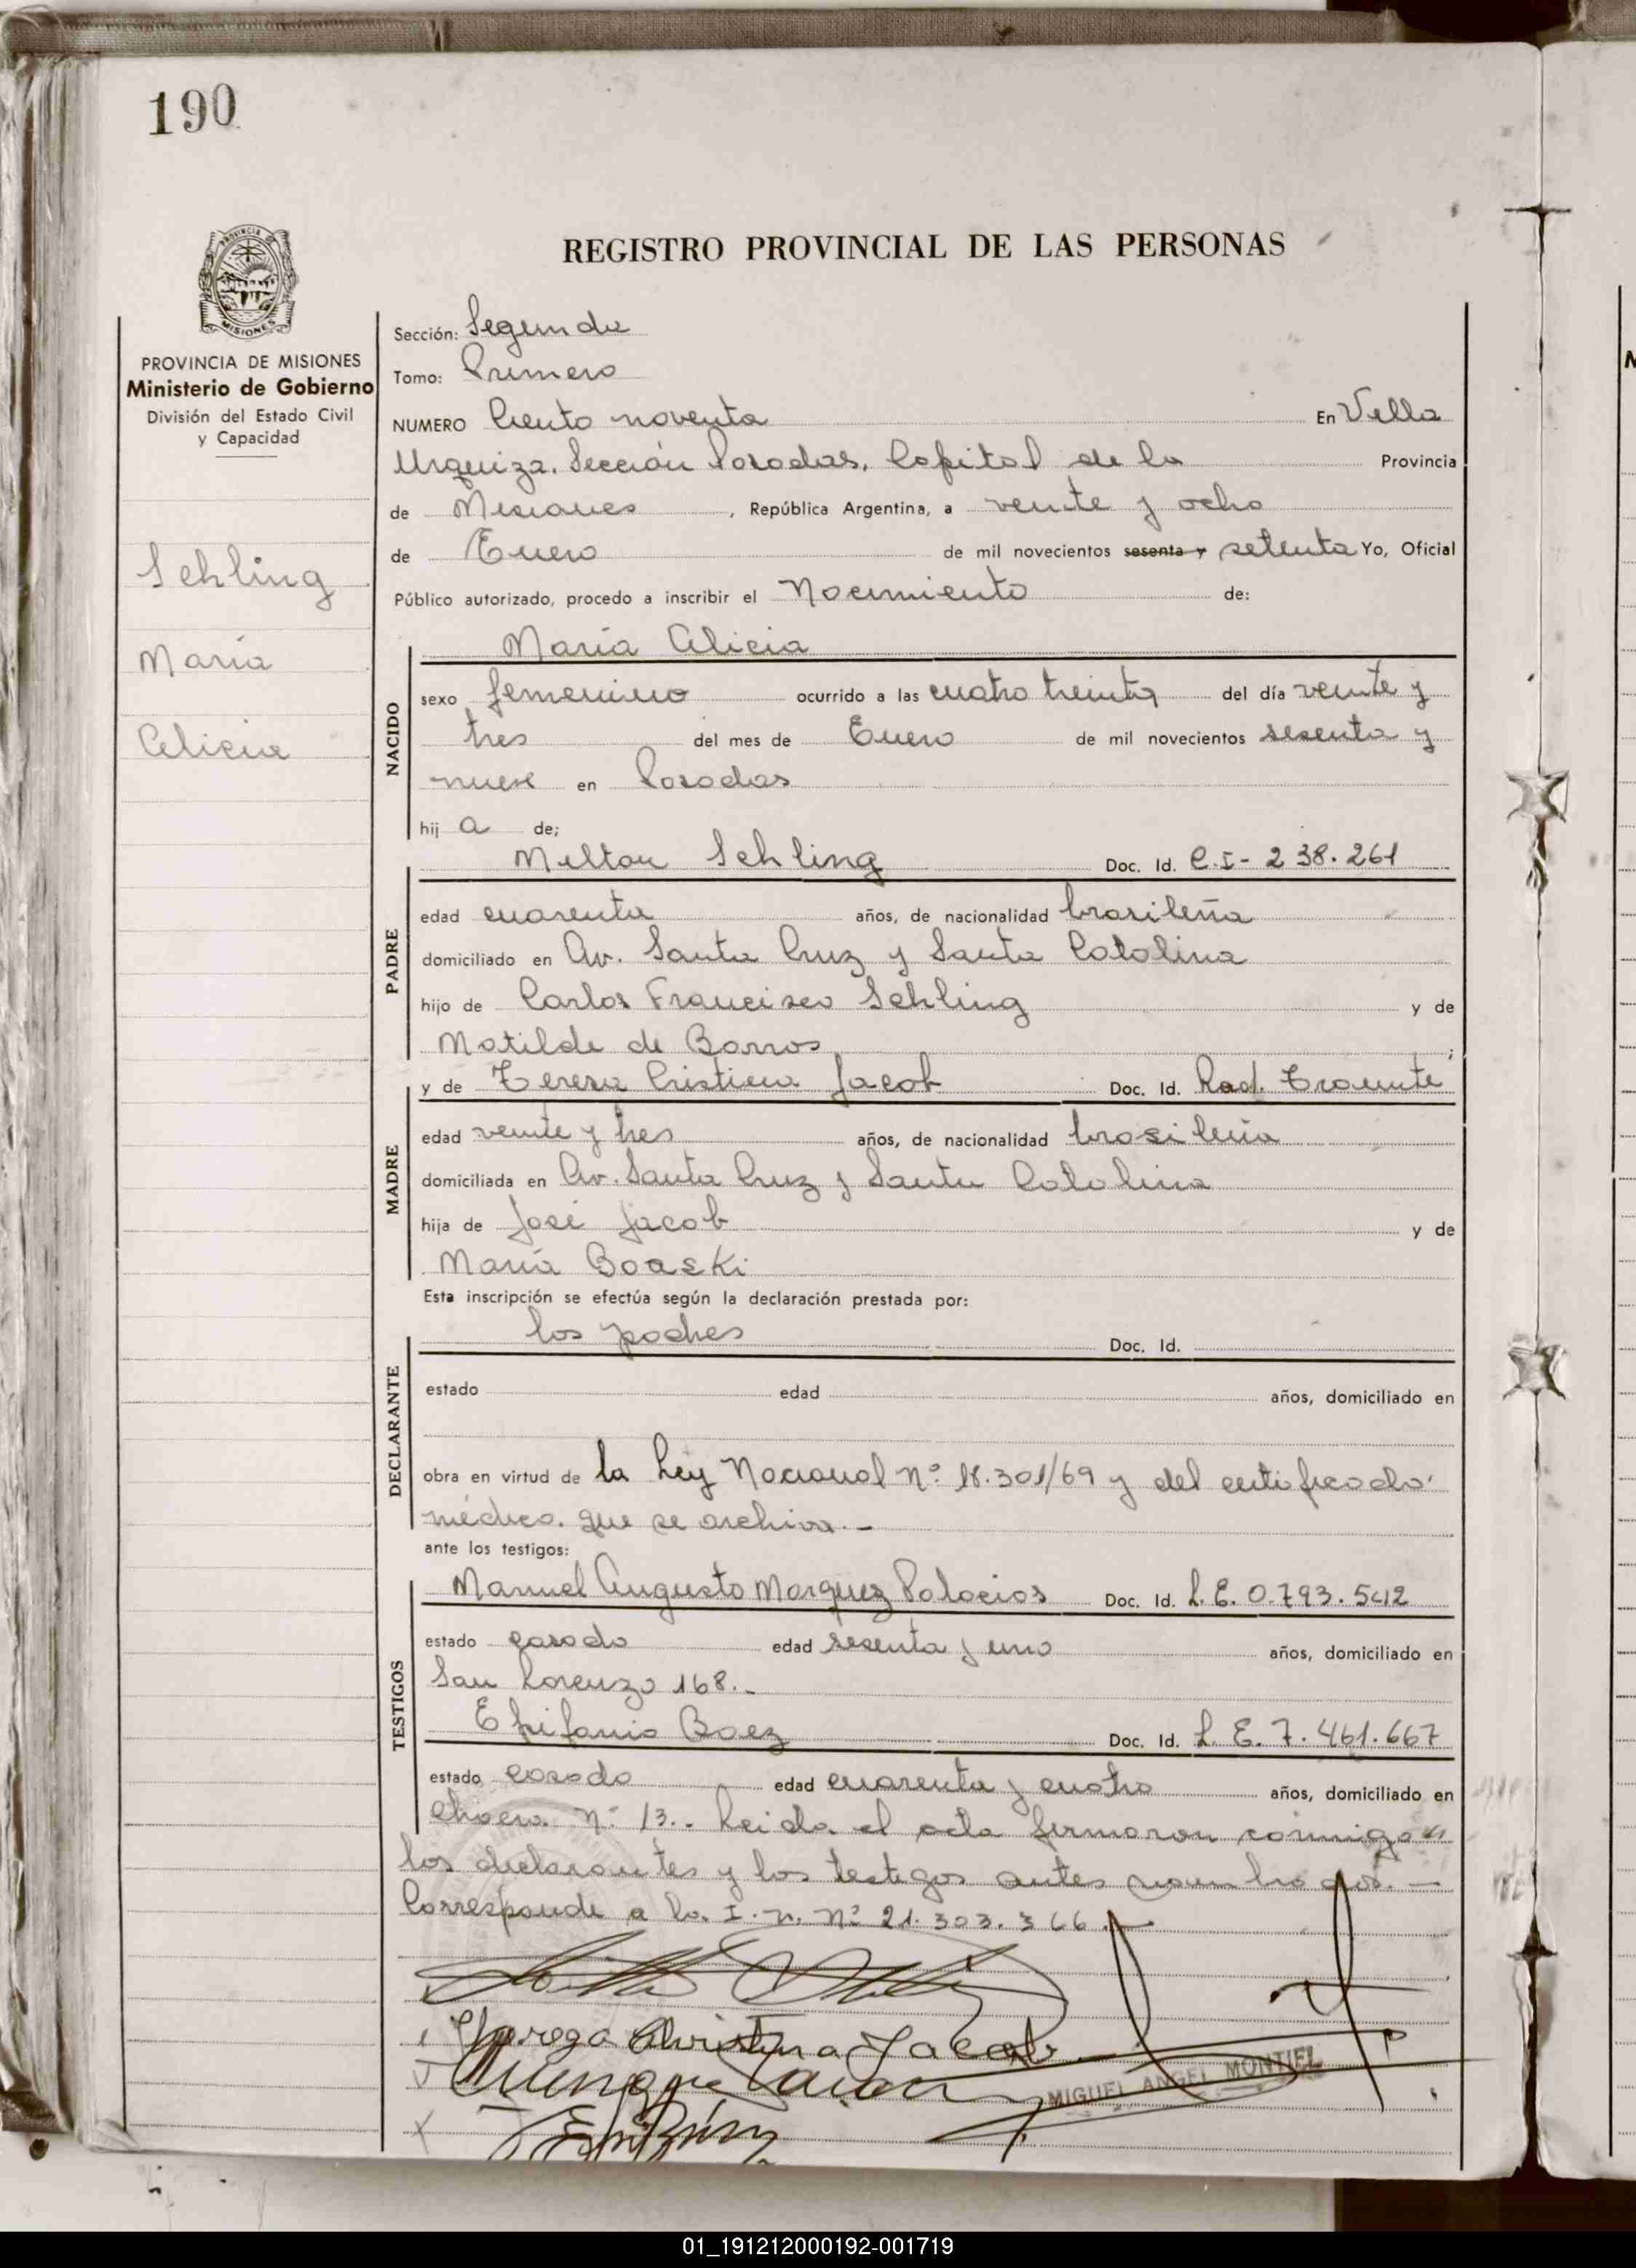 190
REGISTRO PROVINCIAL DE LAS PERSONAS
PROVINCIA DE MISIONES
Ministerio de Gobierno
División del Estado Civil
y Capacidad
Sehling
María
Alicia
Sección: Segunda
Tomo: Primero
NUMERO Ciento noventa En Villa
Urquiza. Sección Posadas, Capital de la Provincia
de Misiones, República Argentina, a veinte y ocho
de Enero de mil novecientos sesenta y setenta Yo, Oficial
Público autorizado, procedo a inscribir el Nacimiento de:
María Alicia
NACIDO
sexo femenino ocurrido a las cuatro treinta del día veinte y
tres del mes de Enero de mil novecientos sesenta y
nueve en Posadas
hij a de;
Milton Sehling Doc. Id. C.I- 238.261
PADRE
edad cuarenta años, de nacionalidad brasileña
domiciliado en Av. Santa Cruz y Santa Catalina
hijo de Carlos Francisco Sehling y de
Matilde de Barros ;
y de Teresa Cristina Jacob Doc. Id. Rad. Tramite
MADRE
edad veinte y tres años, de nacionalidad brasileña
domiciliada en Av. Santa Cruz y Santa Catalina
hija de José Jacob y de
María Boaski
Esta inscripción se efectúa según la declaración prestada por:
los padres Doc. Id.
DECLARANTE
estado edad años, domiciliado en
obra en virtud de la Ley Nacional Nº 18.301/69 y del certificado
médico. que se archiva.-
ante los testigos:
Manuel Augusto Marquez Palacios Doc. Id. L.E. 0.793.542
TESTIGOS
estado casado edad sesenta y uno años, domiciliado en
San Lorenzo 168.-
Epifanio Baez Doc. Id. L.E. 7.461.667
estado casado edad cuarenta y cuatro años, domiciliado en
Chacra Nº 13.. Leida el acta firmaron conmigo
los declarantes y los testigos antes nombrados.-
Corresponde a la I.N. Nº 21.303.366.-
Thereza Christina Jacob
MIGUEL ANGEL MONTIEL
01_191212000192-001719